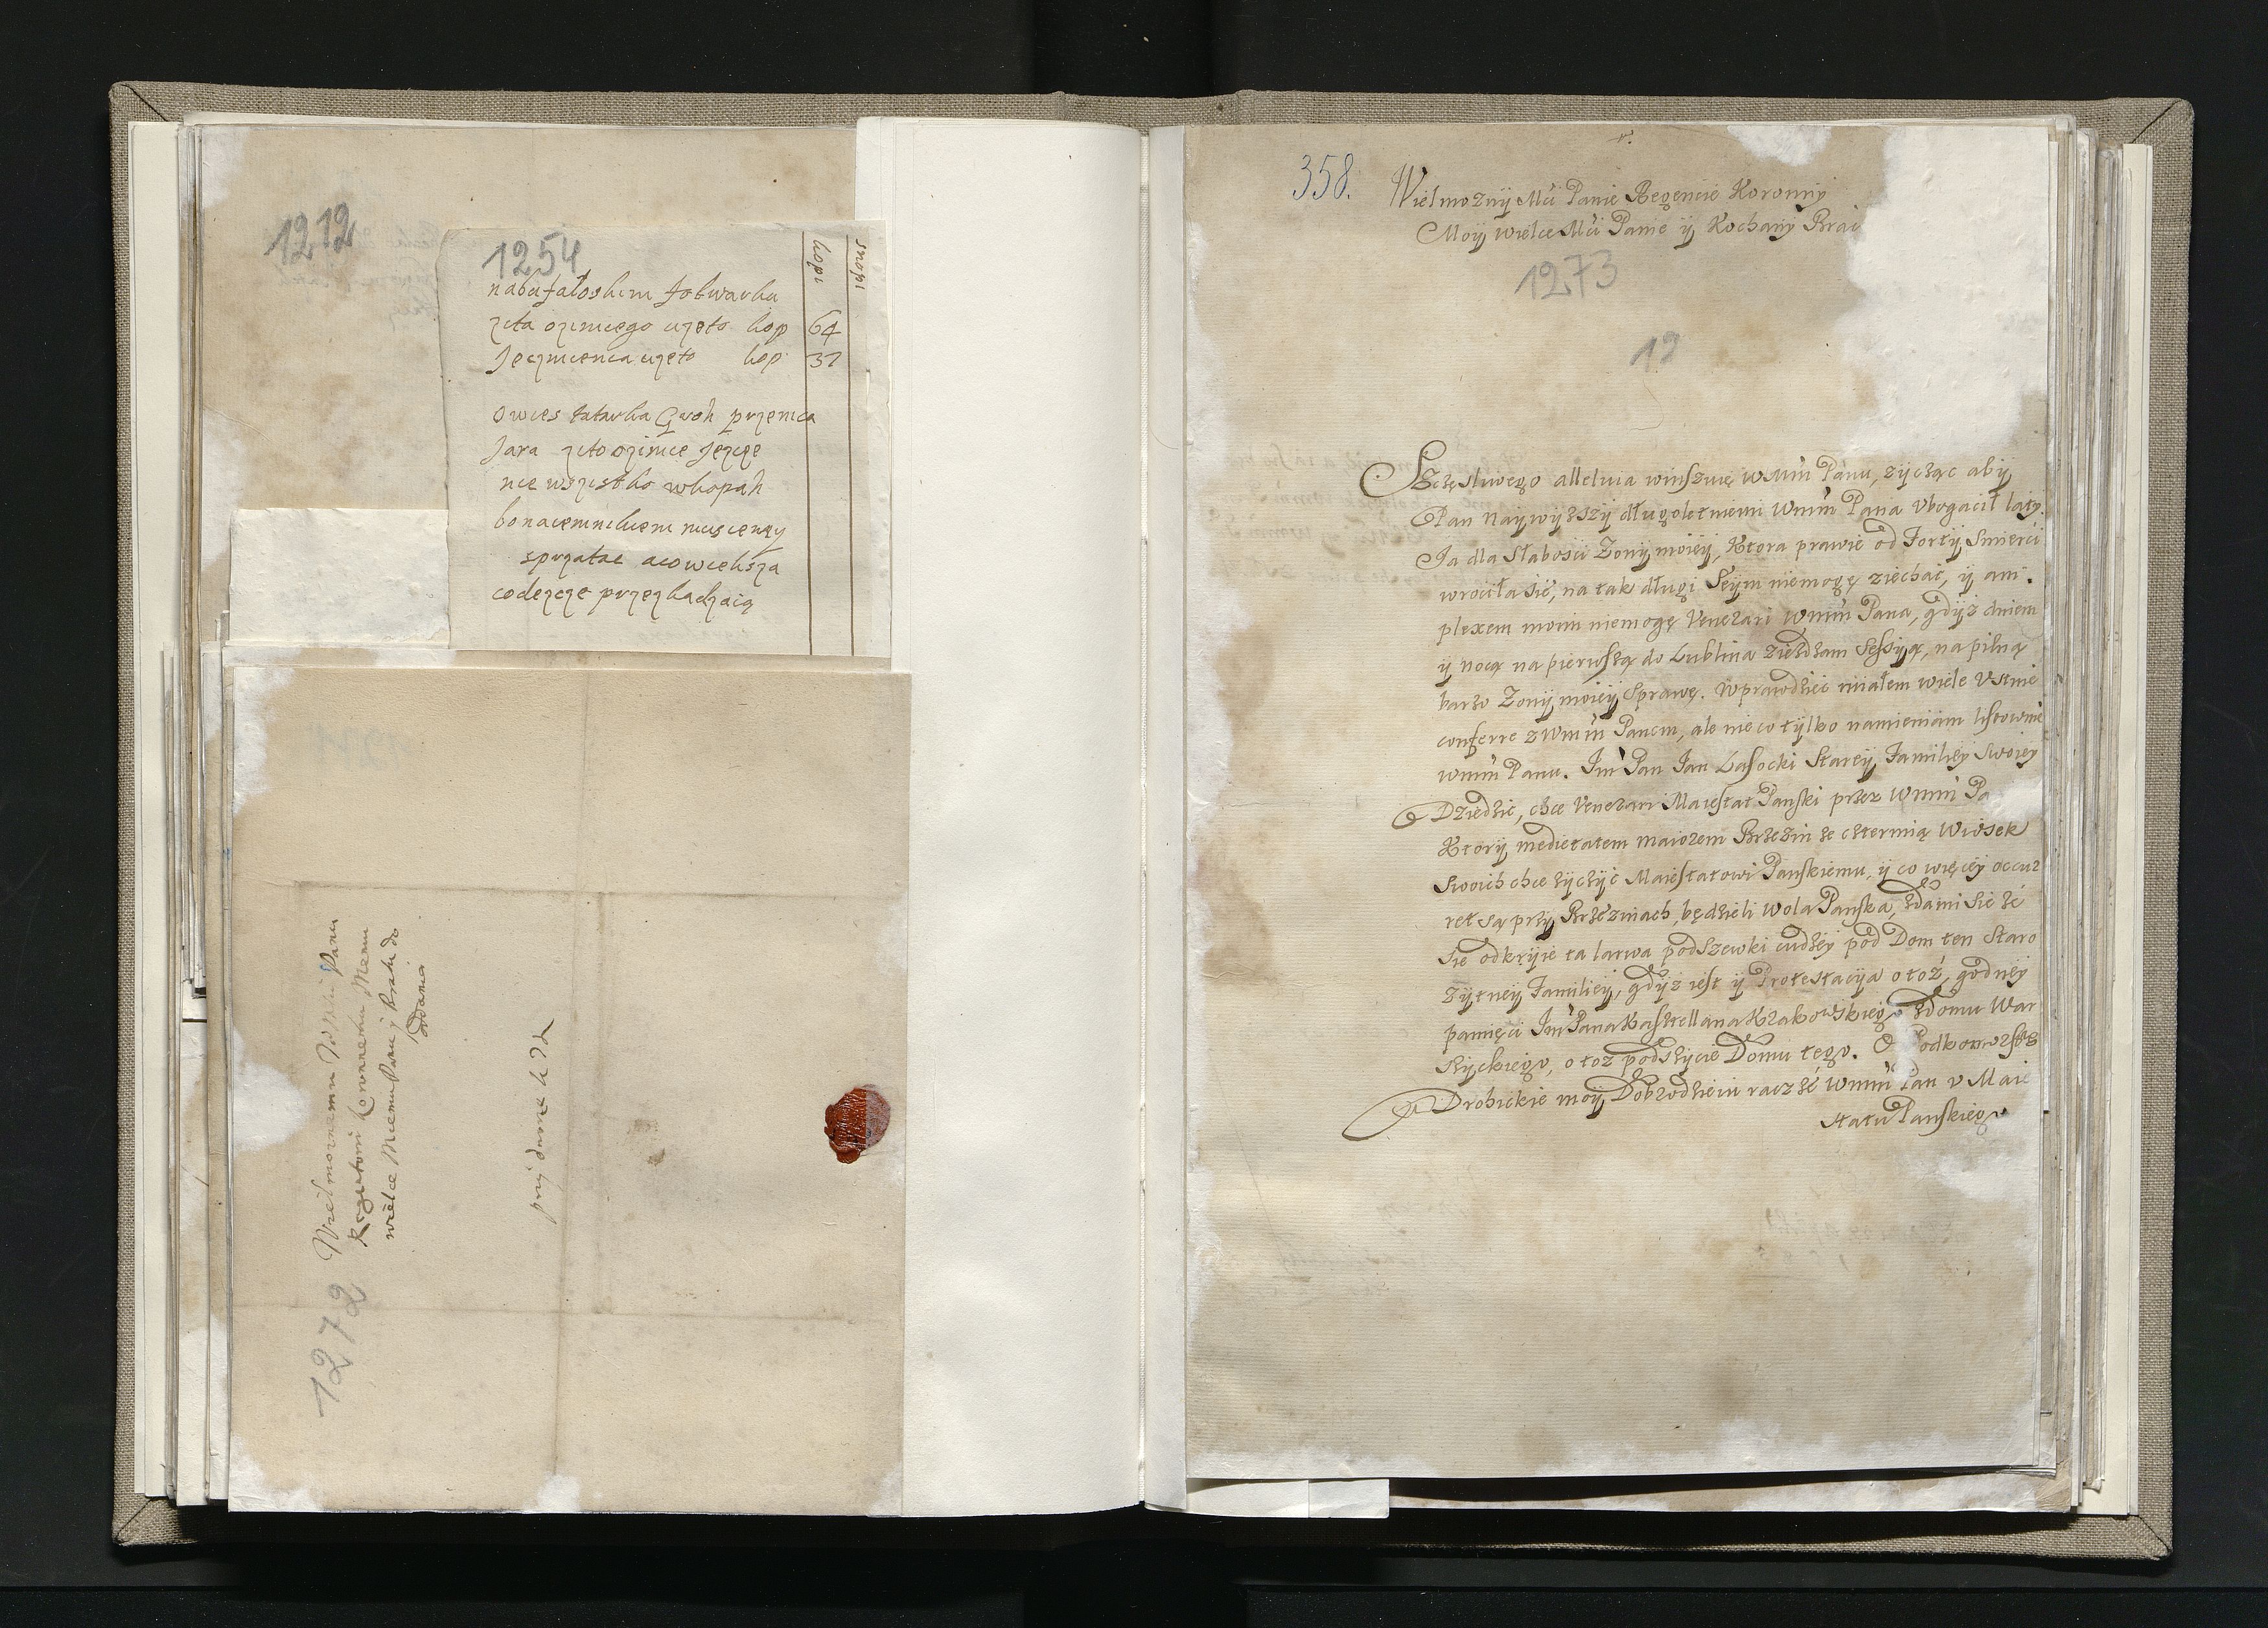 1212
1254
kopi
snopi
nabufałoskim folwarku
zita ozimiego uzęto kop 64
Jeczmienia uzęto kop 37
owies tatarka Groh przenica
Jara zito ozimie Jęzcze
nie wszistko wkopah
bonaiemnikiem musiemy
sprzatac acowieksza
codezcze przezkadzaią
Wielmoznemu Jmści Panu
Regentowi Koronnemu Memu
wielce Miemu Panu j Bratu do
oddania
1272
358.
Wielmoznÿ Mći Panie Regencie Koronnÿ
Moÿ wielce Mći Panie ÿ Kochanÿ Brac
1273
19
Szczęsliwego alleluia winszuię WMm Panu, zÿcząc abÿ
Pan Naÿwÿzszÿ długoletniemi WMm Pana Ubogacił latÿ.
Ja dla Słabosci Zonÿ moieÿ, Ktora prawie od Fortÿ Smierci
wrociła sie, na tak długi Seÿm niemogę ziechać, ÿ am.
plexem moim niemogę Venerari WMm Pana, gdÿz dniem
ÿ nocą na pierwszą do Lublina ziezdzam Sessÿą, na pilną
barzo Zonÿ moieÿ Sprawę. Wprawdzieć miałem wiele Ustnie
conferre z WMm Panem, ale nieco tÿlko namieniam listownie
WMm Panu. Jm Pan Jan Lasocki Stareÿ Familieÿ Swoieÿ
Dziedzic, chce Venerari Maiestat Panski przez WMm Pa
Ktorÿ medietatem maiorem Brzezin ze cztermią Wiosek
Swoich chce zÿczÿć Maiestatowi Panskiemu, ÿ co więceÿ occur
ret są przÿ Brzezinach, będzieli Wola Panska, zda mi sie ze
sie odkrÿie ta larwa podszewki cudzeÿ pod Dom ten Staro
Zÿtneÿ Familieÿ, gdÿz iest ÿ Protestacÿa otoż, godneÿ
pamięci Jm Pana Kasztellana Krakowskiego zdomu War
szÿckiego, otoz podszÿcie Domu tego. O Podkomorstwo
Drohickie moÿ Dobrodzieiu racz ze WMm Pan v Maie
statu Panskiego